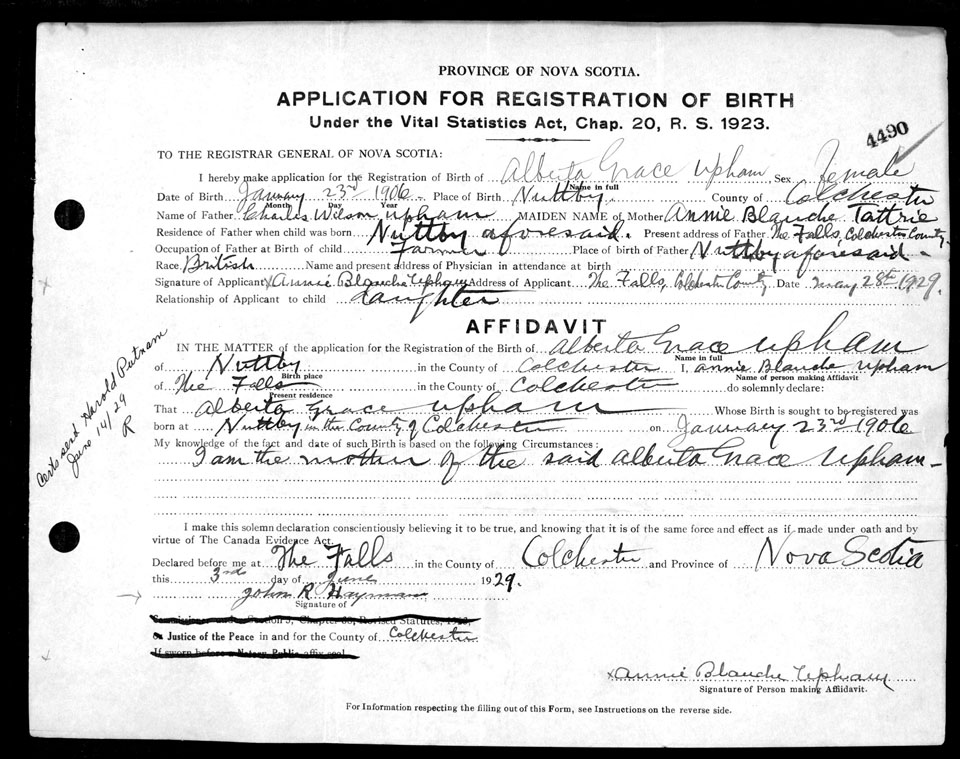 PROVINCE OF NOVA SCOTIA.
APPLICATION FOR REGISTRATION OF BIRTH
Under the Vital Statistics Act, Chap. 20, R. S. 1923.
4490
TO THE REGISTRAR GENERAL OF NOVA SCOTIA:
I hereby make application for the Registration of Birth of Alberta Grace Upham Sex Female
Name in full
Date of Birth January 23rd 1906 Place of Birth Nuttby County of Colchester
Month Day Year
Name of Father Charles Wilson Upham MAIDEN NAME of Mother Annie Blanche Tattrie
Residence of Father when child was born Nuttby aforesaid. Present address of Father The Falls, Colchester County.
Occupation of Father at Birth of child Farmer Place of birth of Father Nuttby aforesaid
Race British Name and present address of Physician in attendance at birth
Signature of Applicant x Annie Blanche Upham Address of Applicant The Falls, Colchester County Date May 28th 1929.
Relationship of Applicant to child daughter
AFFIDAVIT
IN THE MATTER of the application for the Registration of the Birth of Alberta Grace Upham
Name in full
of Nuttby in the County of Colchester I, Annie Blanche Upham
Birth place Name of person making Affidavit
of The Falls in the County of Colchester do solemnly declare:
Present residence
That Alberta Grace Upham Whose Birth is sought to be registered was
born at Nuttby in the County of Colchester on January 23rd 1906
My knowledge of the fact and date of such Birth is based on the following Circumstances:
I am the mother of the said Alberta Grace Upham
I make this solemn declaration conscientiously believing it to be true, and knowing that it is of the same force and effect as if made under oath and by
virtue of The Canada Evidence Act.
Declared before me at The Falls in the County of Colchester and Province of Nova Scotia
this 3rd day of June 1929.
John R Hayman
Signature of
Justice of the Peace in and for the County of Colchester
x Annie Blanche Upham
Signature of Person making Affidavit.
For Information respecting the filling out of this Form, see Instructions on the reverse side.
Certs send Harold Putnam
June 14/29
R